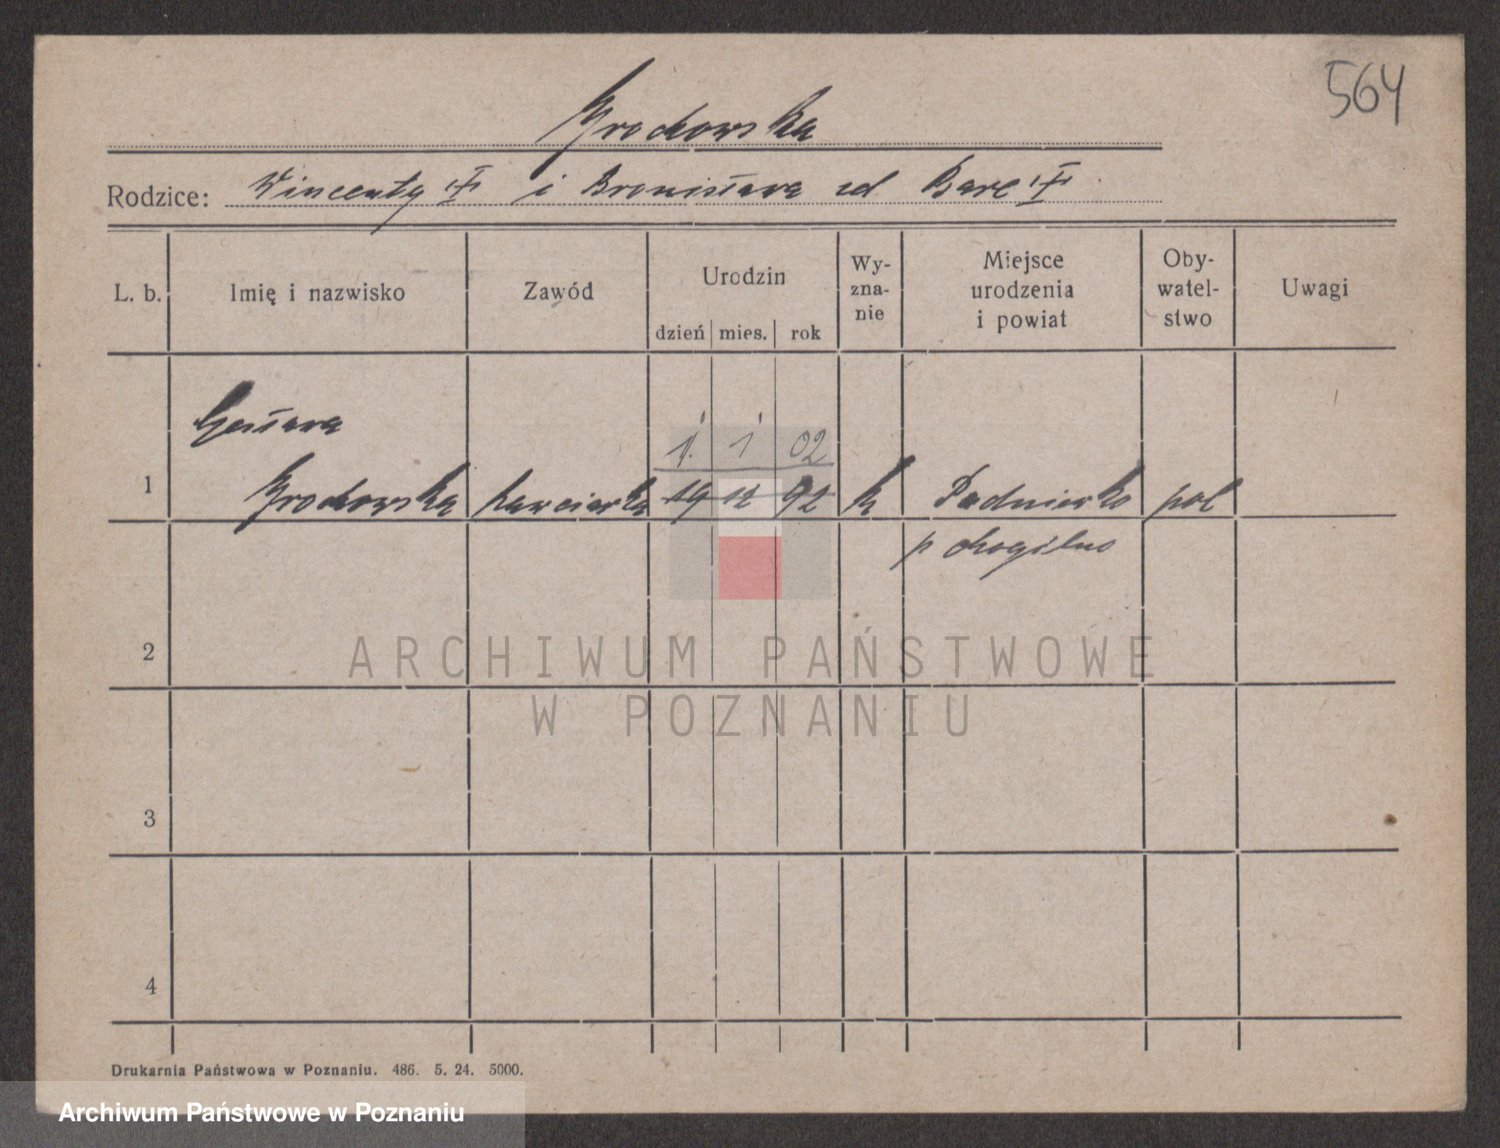 564
Grochowska
Rodzice: Wincenty i Bronisława zd Barc
L. b. Imię i nazwisko Zawód Urodzin dzień mies. rok Wy-zna-nie Miejsce urodzenia i powiat Oby-watel-stwo Uwagi
1. 1 02
1 Grochowska 19 12 92 k pol
p Mogilno
2
ARCHIWUM PAŃSTWOWE
W POZNANIU
3
4
Drukarnia Państwowa w Poznaniu. 486. 5. 24. 5000.
Archiwum Państwowe w Poznaniu